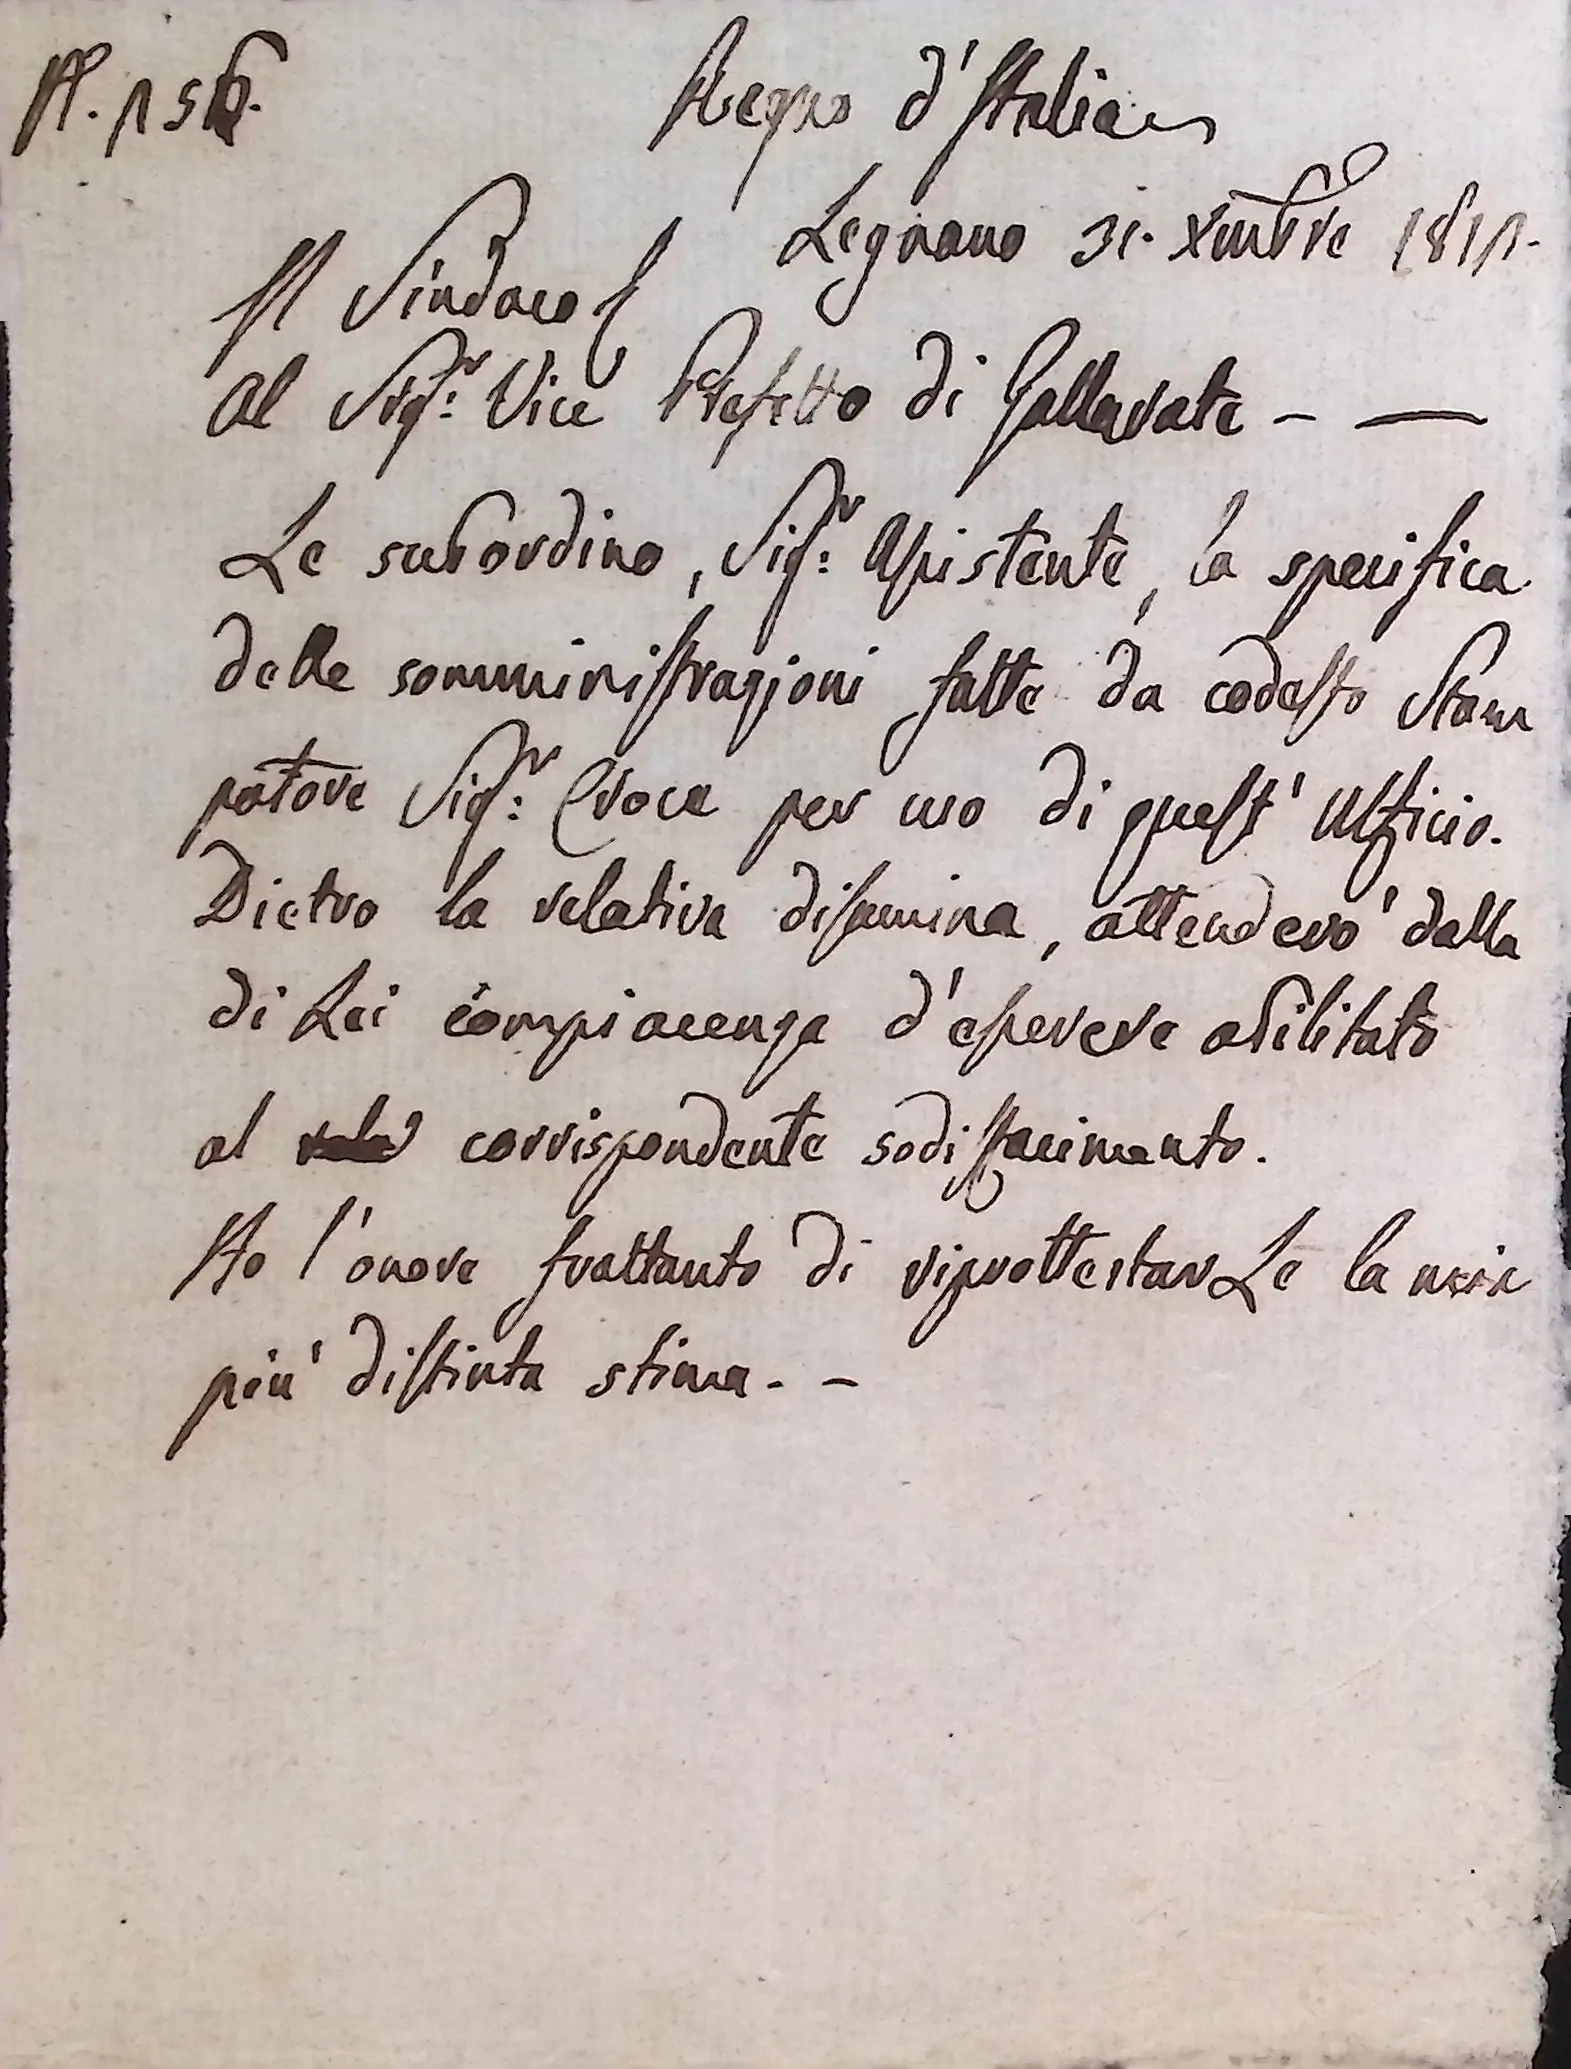 N. 156.
Regno d'Italia
Legnano 31. Xmbre 1811.
Il Sindaco
Al Sigr: Vice Prefetto di Gallarate - —
Le subordino, Sigr: Assistente, la specifica
delle somministrazioni fatte da codesto Stam
patore Sigr: Croce per uso di quest' Ufficio.
Dietro la relativa disamina, attenderò dalla
di Lei compiacenza d'essere abilitato
al corrispondente sodisfacimento.
Ho l'onore frattanto di riprottestarLe la mia
più distinta stima. -